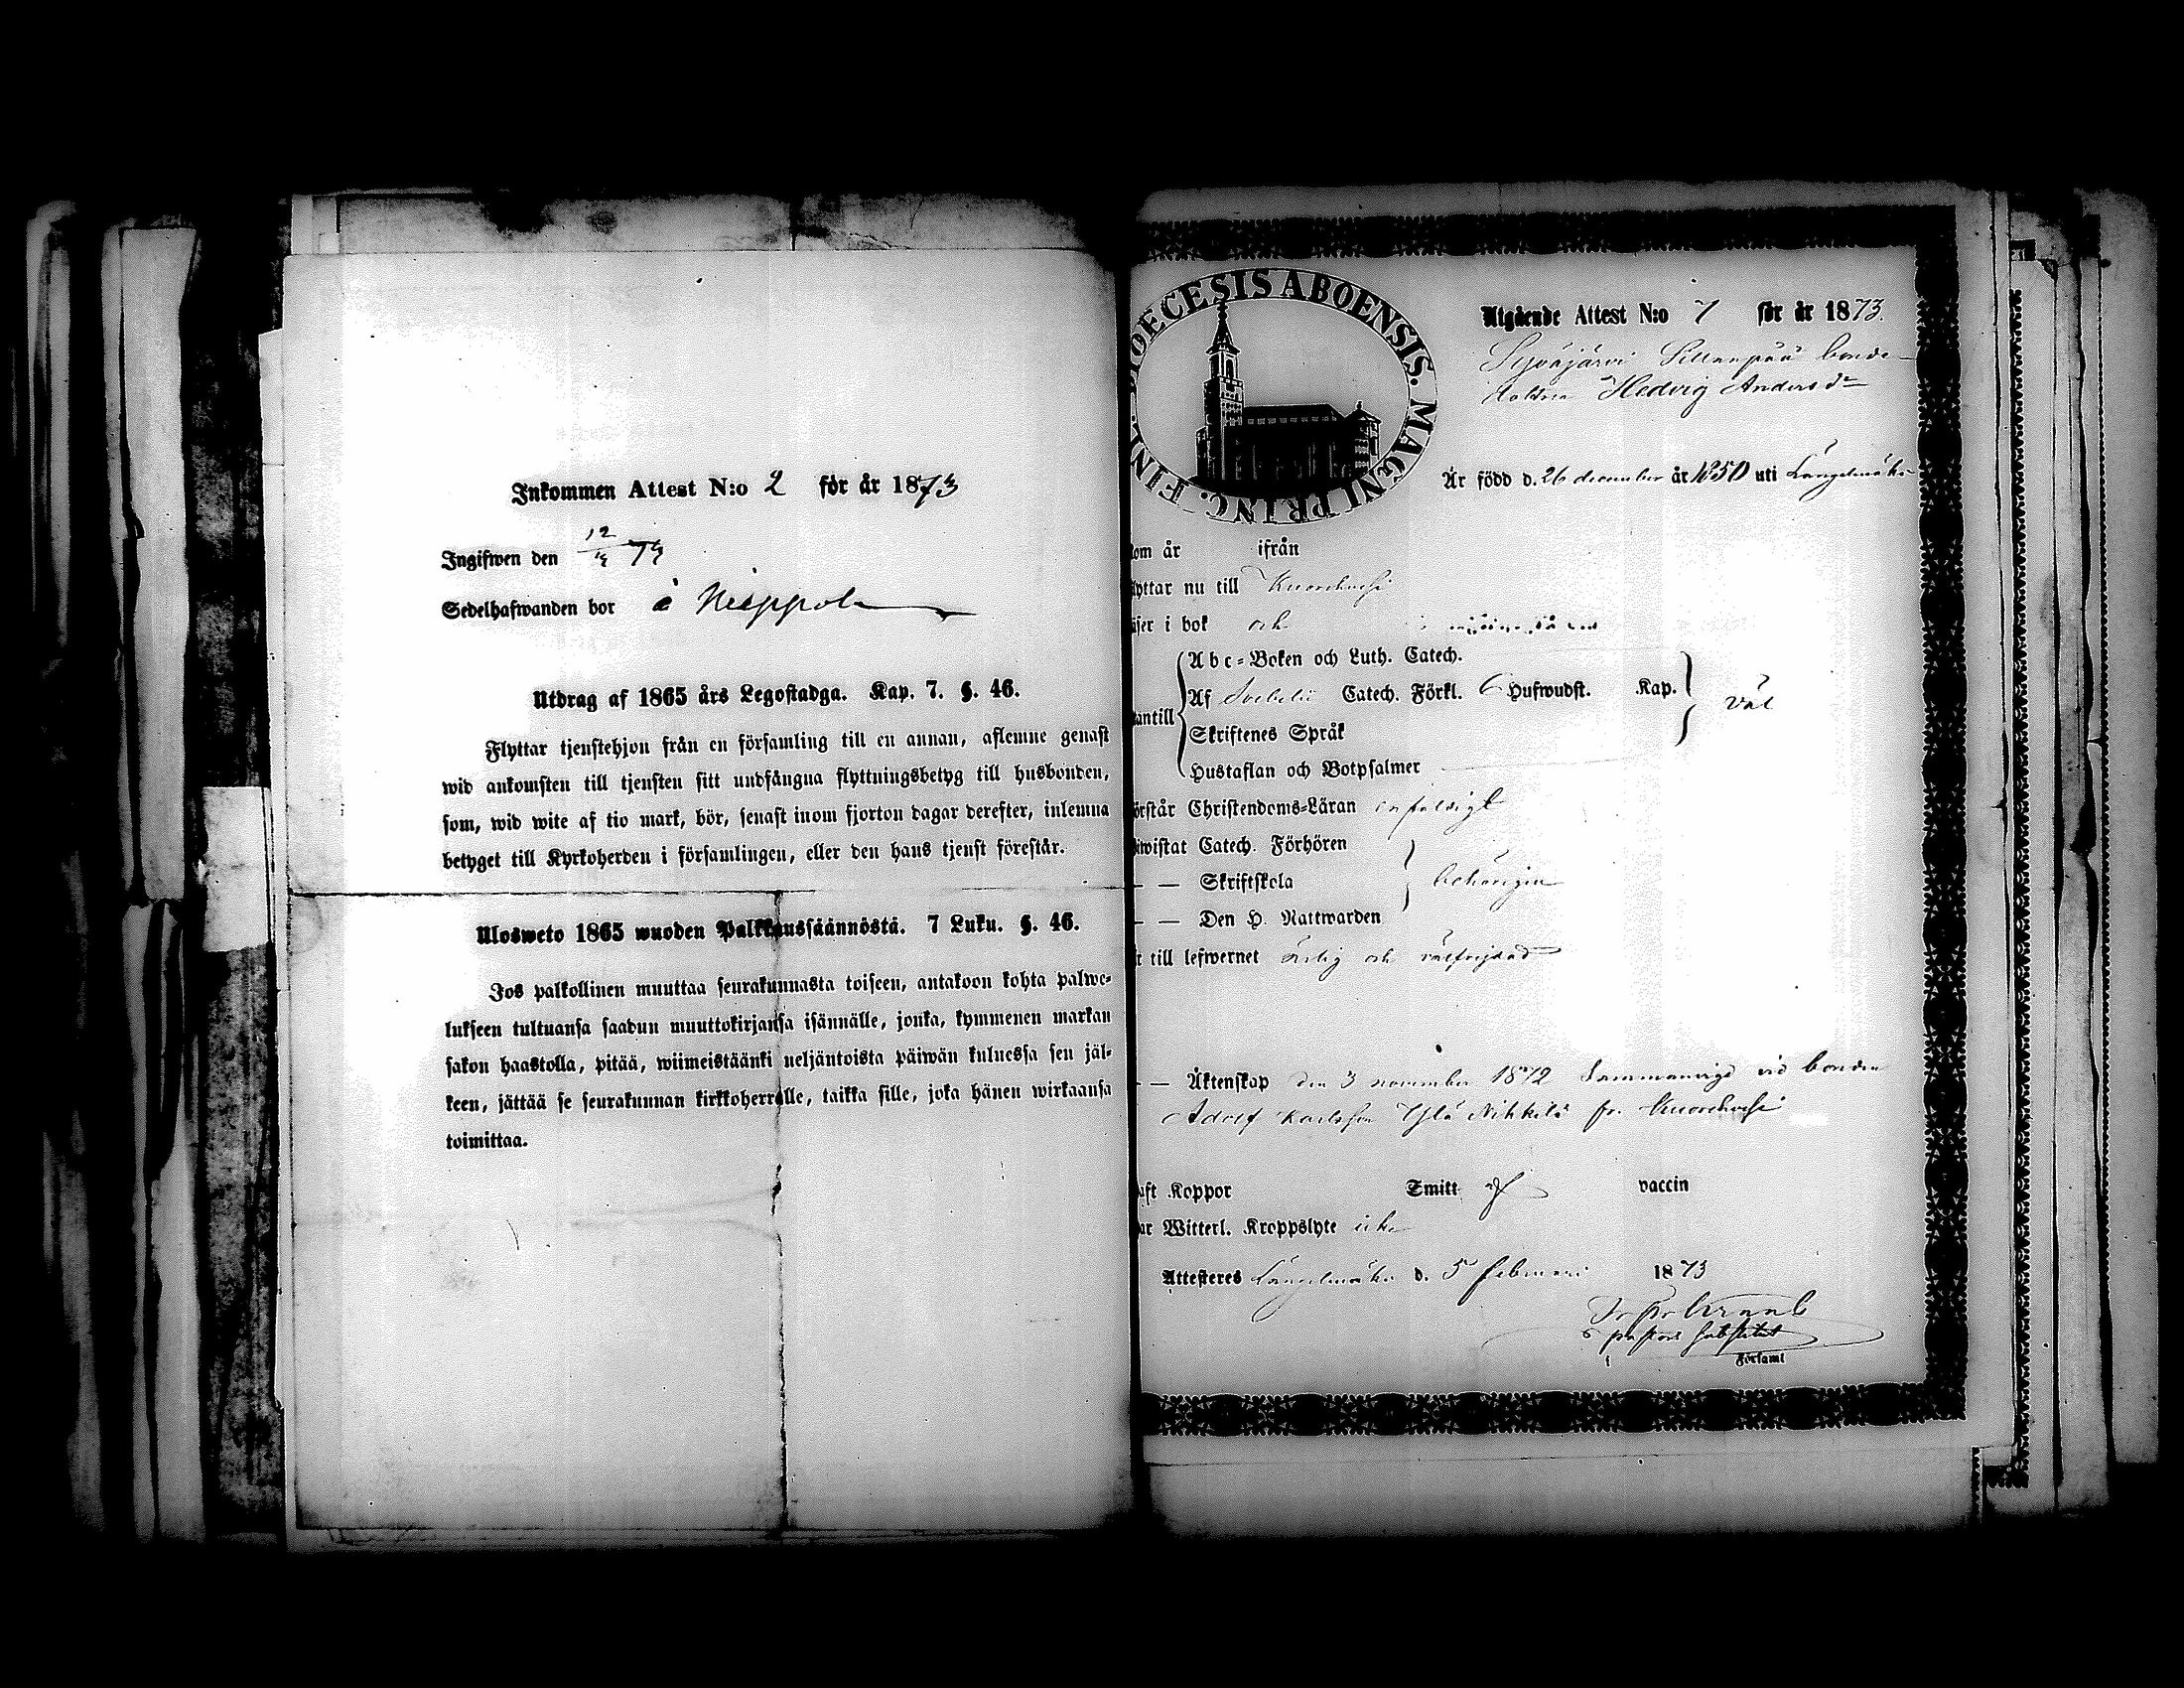 Inkommen Attest N:o 2 för år 1873
Ingifwen den 12
Sedelhafwanden bor i
Utdrag af 1865 års Legostadga. Kap. 7. §. 46.
Flyttar tjenstehjon från en församling till en annan, aflemne genast
wid ankomsten till tjensten sitt undfångna flyttningsbetyg till husbonden,
som, wid wite af tio mark, bör, senast inom fjorton dagar derefter, inlemna
betyget till Kyrkoherden i församlingen, eller den hans tjenst förestår.
Ulosweto 1865 wuoden Palkkaussäännöstä. 7 Luku. §. 46.
Jos palkollinen muuttaa seurakunnasta toiseen, antakoon kohta palwe-
lukseen tultuansa saadun muuttokirjansa isännälle, jonka, kymmenen markan
sakon haastolla, pitää, wiimeistäänki neljäntoista päiwän kuluessa sen jäl-
keen, jättää se seurakunnan kirkkoherralle, taikka sille, joka hänen wirkaansa
toimittaa.
DIOECESIS ABOENSIS. MAGNI PRINC. FINL.
Utgående Attest N:o 7 för år 1873.
Sillanpää bonde-
Hedvig Andersdr
Är född d. 26 december år 1850 uti Längelmäki
om år ifrån
lyttar nu till Kuorehvesi
äser i bok och
antill
Abc-Boken och Luth. Catech.
Af Svebelii Catech. Förkl. 6 Hufwudst. Kap.
väl
Skriftenes Språk
Hustaflan och Botpsalmer
örstår Christendoms-Läran enfaldigt
iwistat Catech. Förhören
— — Skriftskola
behörigen
— — Den H. Nattwarden
r till lefwernet ärlig och välfrejdad
— — Äktenskap den 3 november 1872 Sammanvigd vid bonden
Adolf Karlsson Ylä Nikkilä fr. Kuorehvesi
aft Koppor Smitt af vaccin
ar Witterl. Kroppslyte icke
Attesteras Längelmäki d. 5 februari 1873
pastors substitut
Församl